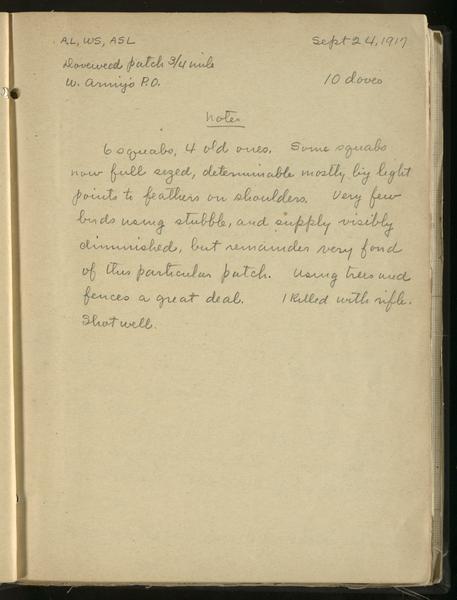 AL, WS, ASL
Sept 24, 1917
Doveweed patch 3/4 mile
W. Armijo P.O.
10 doves
Notes
6 squabs, 4 old ones. Some squabs
now full sized, determinable mostly by light
points to feathers on shoulders. Very few
birds using stubble, and supply visibly
diminished, but remainder very fond
of this particular patch. Using trees and
fences a great deal. 1 killed with rifle.
Shot well.